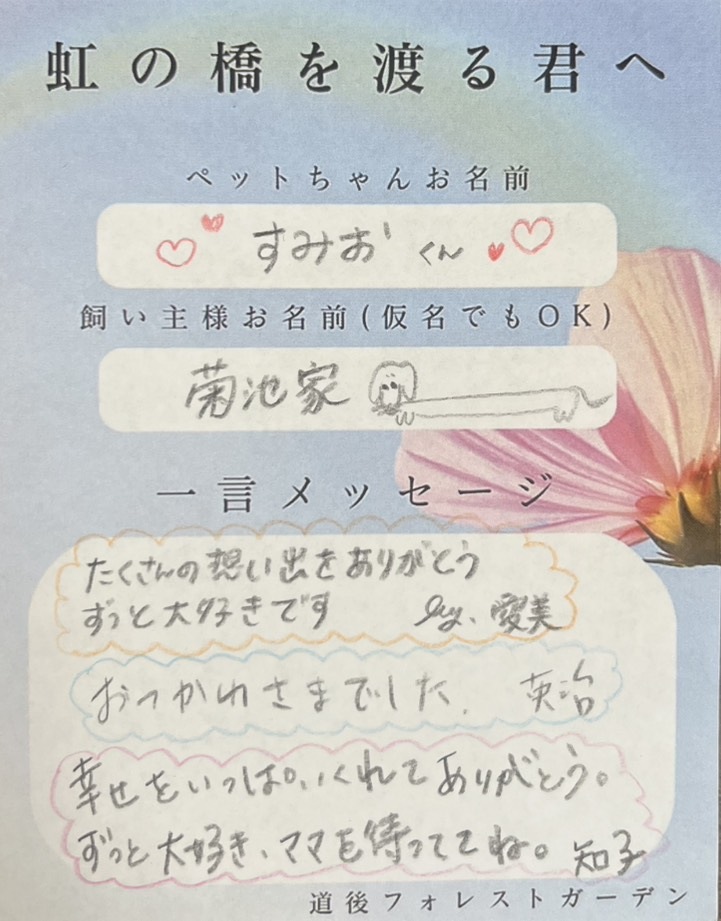 虹の橋を渡る君へ
ペットちゃんお名前
すみお くん
飼い主様お名前(仮名でもOK)
菊池家
一言メッセージ
たくさんの想い出をありがとう
ずっと大好きです by. 愛美
おつかれさまでした. 英治
幸せをいっぱいくれてありがとう。
ずっと大好き、ママを待っててね。 知子
道後フォレストガーデン